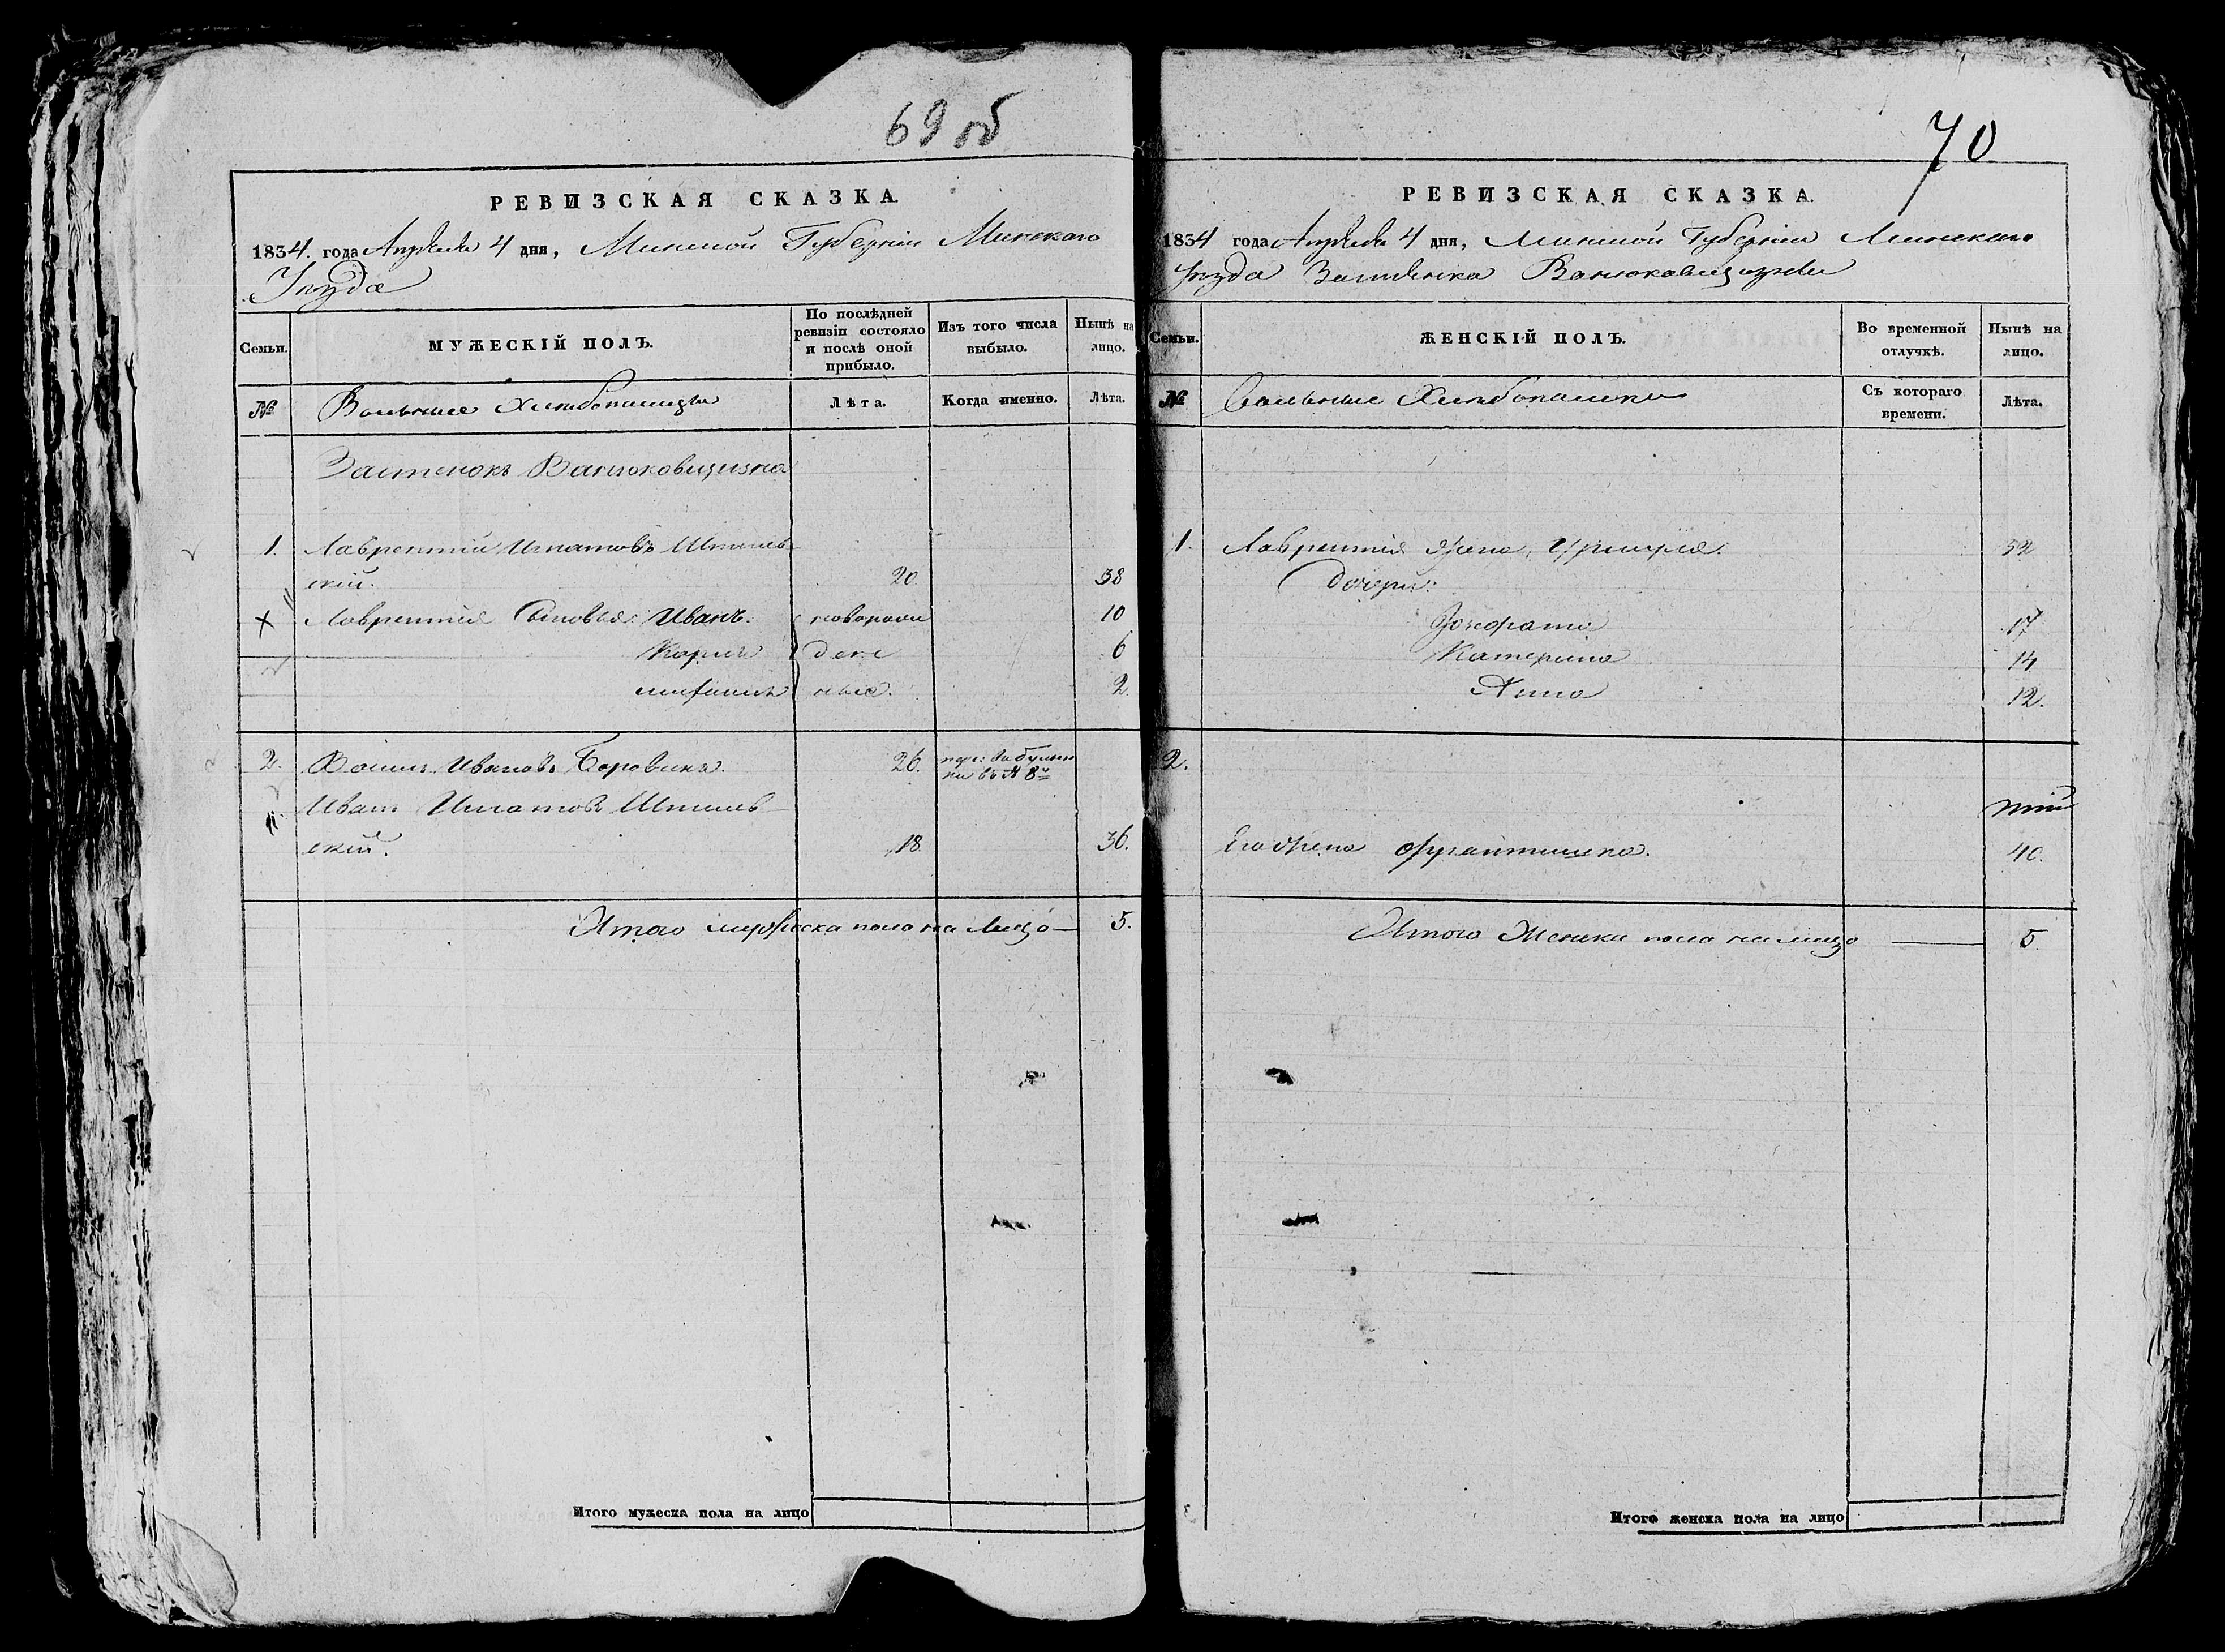 69 об
РЕВИЗСКАЯ СКАЗКА.
1834. года Апреля 4 дня, Минской Губерніи Минскаго
Уезда
Семьи.
МУЖЕСКІЙ ПОЛЪ.
По послѣдней ревизіи состояло и послѣ оной прибыло.
Изъ того числа выбыло.
Нынѣ на лицо.
№
Вольные Хлебопашцы
Лѣта.
Когда именно.
Лѣта.
Застенокъ Ванюковщизна
1. Лаврентій Игнатовъ
скій. 20. 38
Лаврентія Сыновья: Иванъ. новорож 10
Карлъ денн 6
ные. 2
2. Ивановъ Боровикъ. 26.
Иванъ Игнатовъ
скій. 18. 36.
Итого мужеска пола на лицо — 5.
Итого мужеска пола на лицо
70
РЕВИЗСКАЯ СКАЗКА.
1834 года Апреля 4 дня, Минской Губерніи Минскаго
Уезда Застенка Ванюковщизны
Семьи.
ЖЕНСКІЙ ПОЛЪ.
Во временной отлучкѣ.
Нынѣ на лицо.
№
Вольные Хлебопашцы
Съ котораго времени.
Лѣта.
1. Лаврентія жена 32
дочери:
17
Катерина 14
Анна 12.
2.
Его жена Франтишка. 40.
Итого Женска пола на лицо — 5.
Итого женска пола на лицо